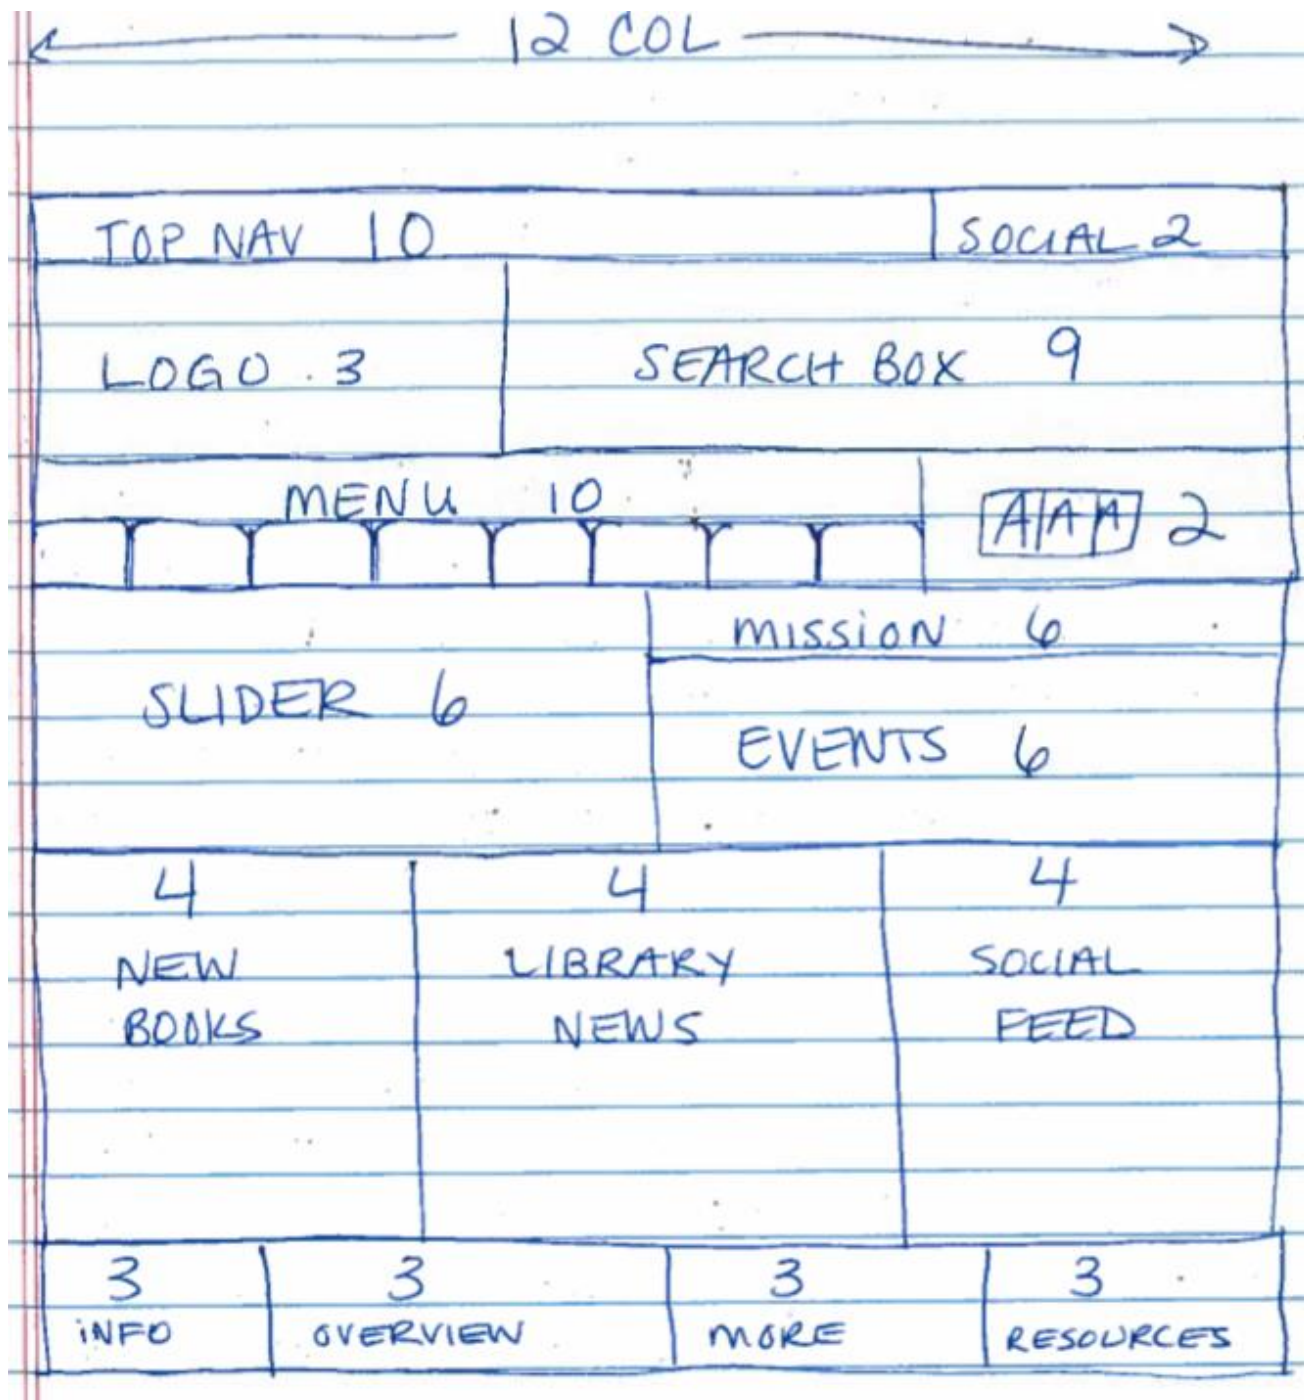 12 COL
TOP NAV 10
SOCIAL 2
LOGO 3
SEARCH BOX 9
MENU 10
A A A 2
SLIDER 6
MISSION 6
EVENTS 6
4
NEW
BOOKS
4
LIBRARY
NEWS
4
SOCIAL
FEED
3
INFO
3
OVERVIEW
3
MORE
3
RESOURCES